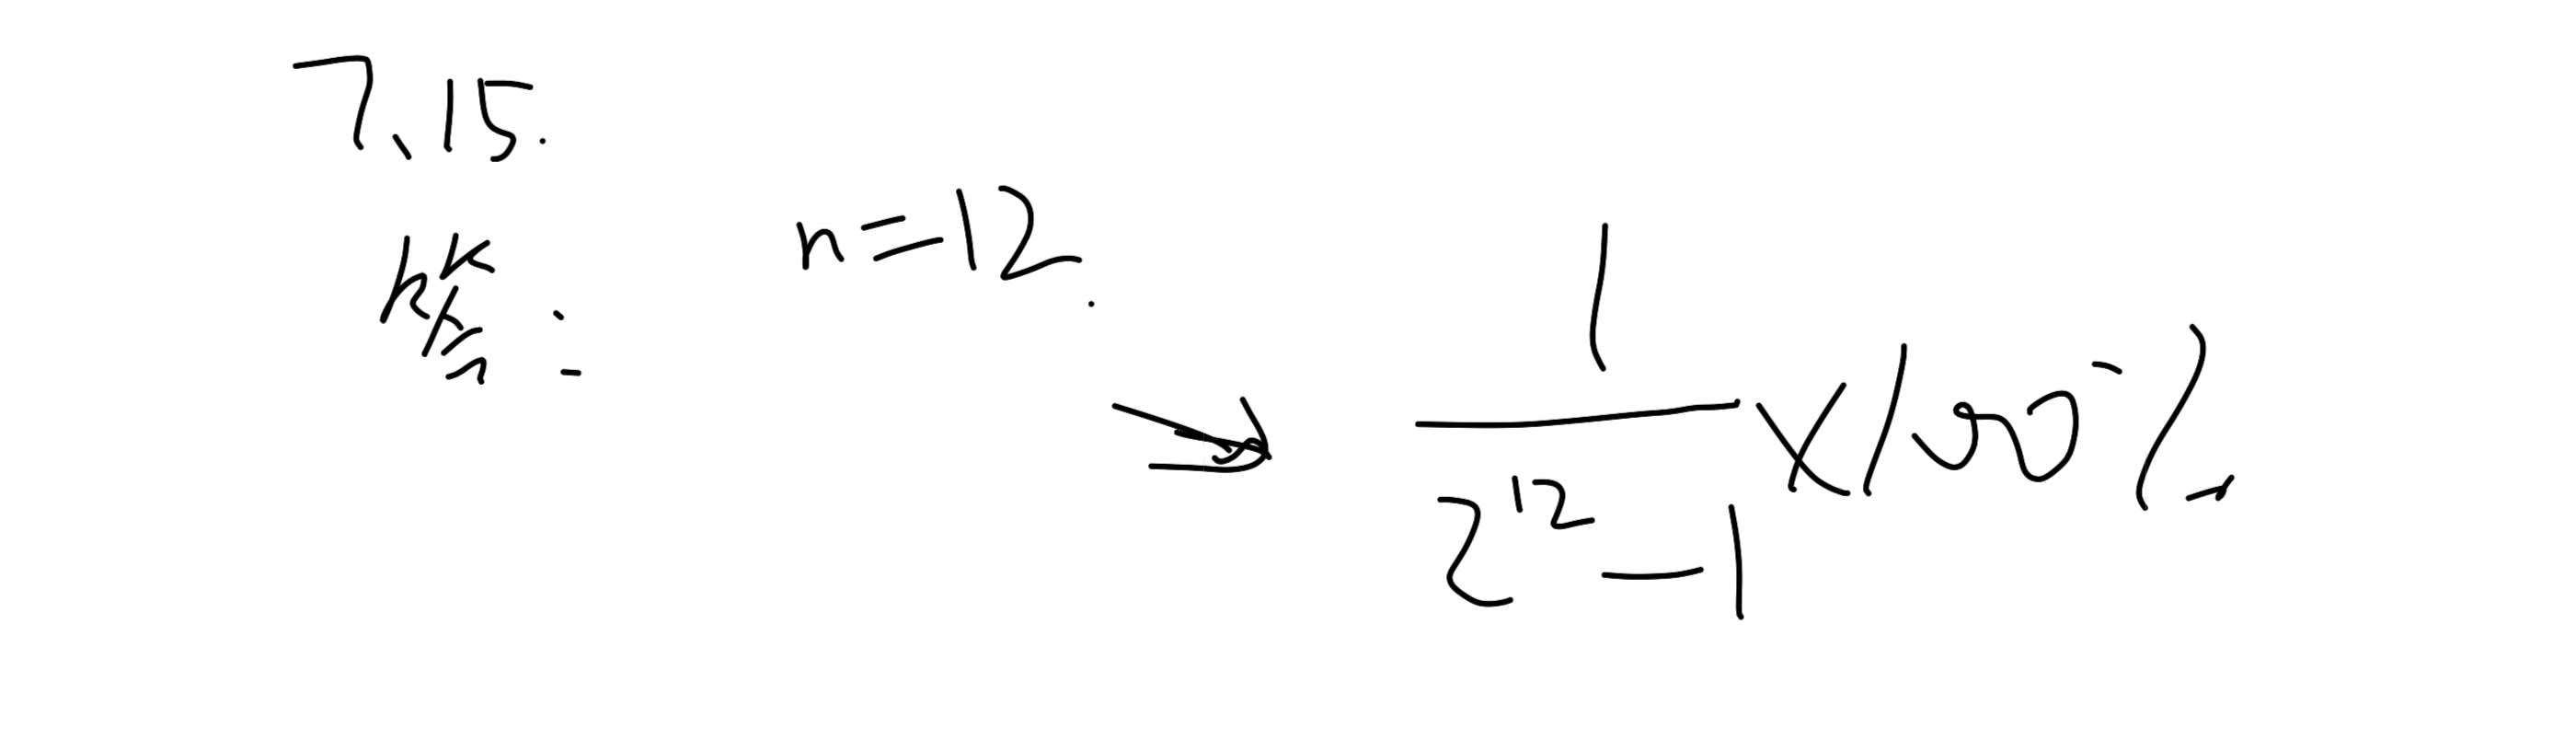 7、15.
n=12.
1/(2^12-1) ×100%